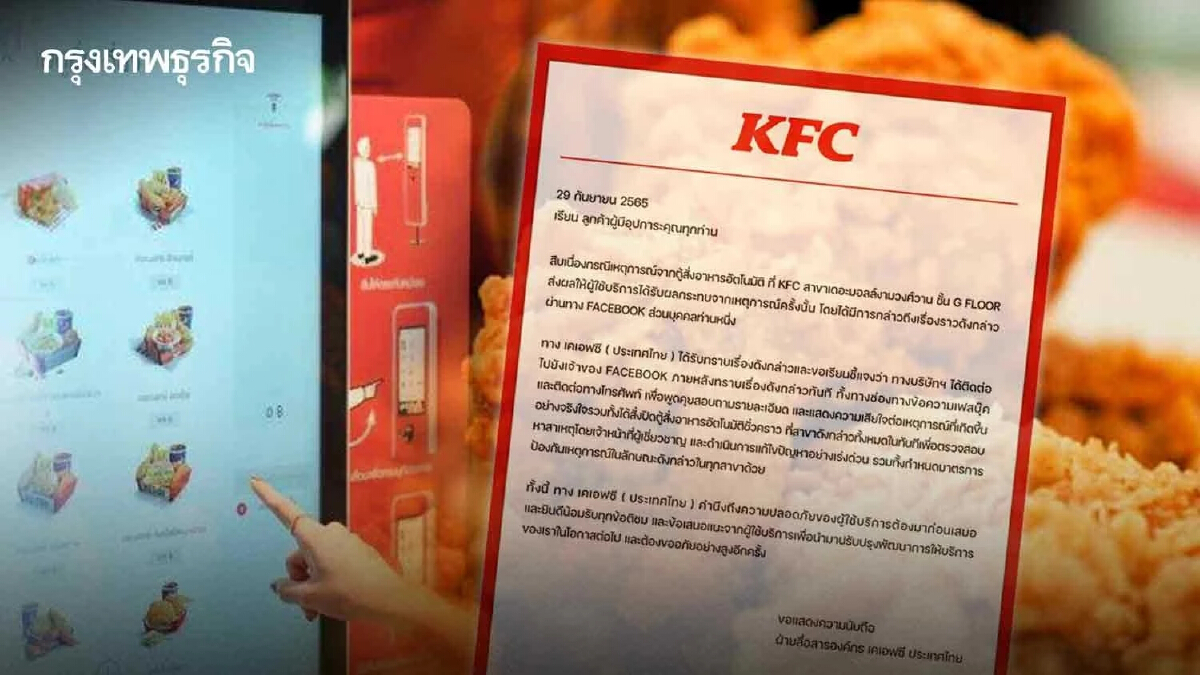 กรุงเทพธุรกิจ
KFC
29 กันยายน 2565
เรียน ลูกค้าผู้มีอุปการะคุณทุกท่าน
สืบเนื่องกรณีเหตุการณ์จากตู้สั่งอาหารอัตโนมัติ ที่ KFC สาขาเดอะมอลล์งามวงศ์วาน ชั้น G FLOOR
ส่งผลให้ผู้ใช้บริการได้รับผลกระทบจากเหตุการณ์ครั้งนั้น โดยได้มีการกล่าวถึงเรื่องราวดังกล่าว
ผ่านทาง FACEBOOK ส่วนบุคคลท่านหนึ่ง
ทาง เคเอฟซี ( ประเทศไทย ) ได้รับทราบเรื่องดังกล่าวและขอเรียนชี้แจงว่า ทางบริษัทฯ ได้ติดต่อ
ไปยังเจ้าของ FACEBOOK ภายหลังทราบเรื่องดังกล่าวทันที ทั้งทางช่องทางข้อความเฟสบุ๊ค
และติดต่อทางโทรศัพท์ เพื่อพูดคุยสอบถามรายละเอียด และแสดงความเสียใจต่อเหตุการณ์ที่เกิดขึ้น
อย่างจริงใจรวมทั้งได้สั่งปิดตู้สั่งอาหารอัตโนมัติชั่วคราว ที่สาขาดังกล่าวทั้งหมดในทันทีเพื่อตรวจสอบ
หาสาเหตุโดยเจ้าหน้าที่ผู้เชี่ยวชาญ และดำเนินการแก้ไขปัญหาอย่างเร่งด่วน รวมทั้งกำหนดมาตรการ
ป้องกันเหตุการณ์ในลักษณะดังกล่าวในทุกสาขาด้วย
ทั้งนี้ ทาง เคเอฟซี ( ประเทศไทย ) คำนึงถึงความปลอดภัยของผู้ใช้บริการต้องมาก่อนเสมอ
และยินดีน้อมรับทุกข้อติชม และข้อเสนอแนะจากผู้ใช้บริการเพื่อนำมาปรับปรุงพัฒนาการให้บริการ
ของเราในโอกาสต่อไป และต้องขออภัยอย่างสูงอีกครั้ง
ขอแสดงความนับถือ
ฝ่ายสื่อสารองค์กร เคเอฟซี ประเทศไทย